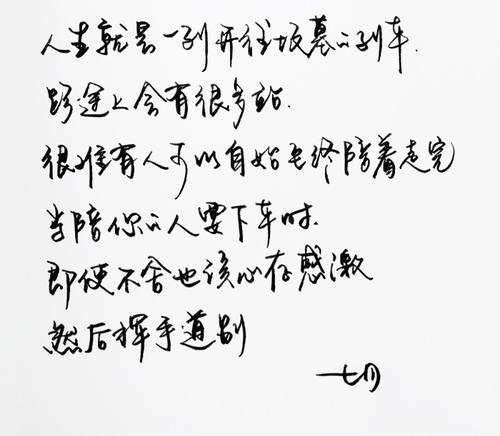 人生就是一列开往坟墓的列车.
路途上会有很多站.
很难有人可以自始至终陪着走完
当陪你的人要下车时.
即使不舍也该心存感激
然后挥手道别